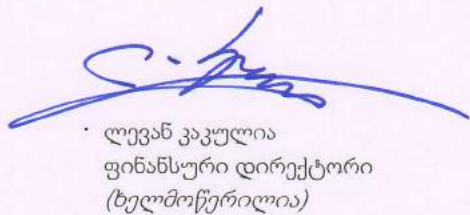 ლევან კაკულია
ფინანსური დირექტორი
(ხელმოწერილია)